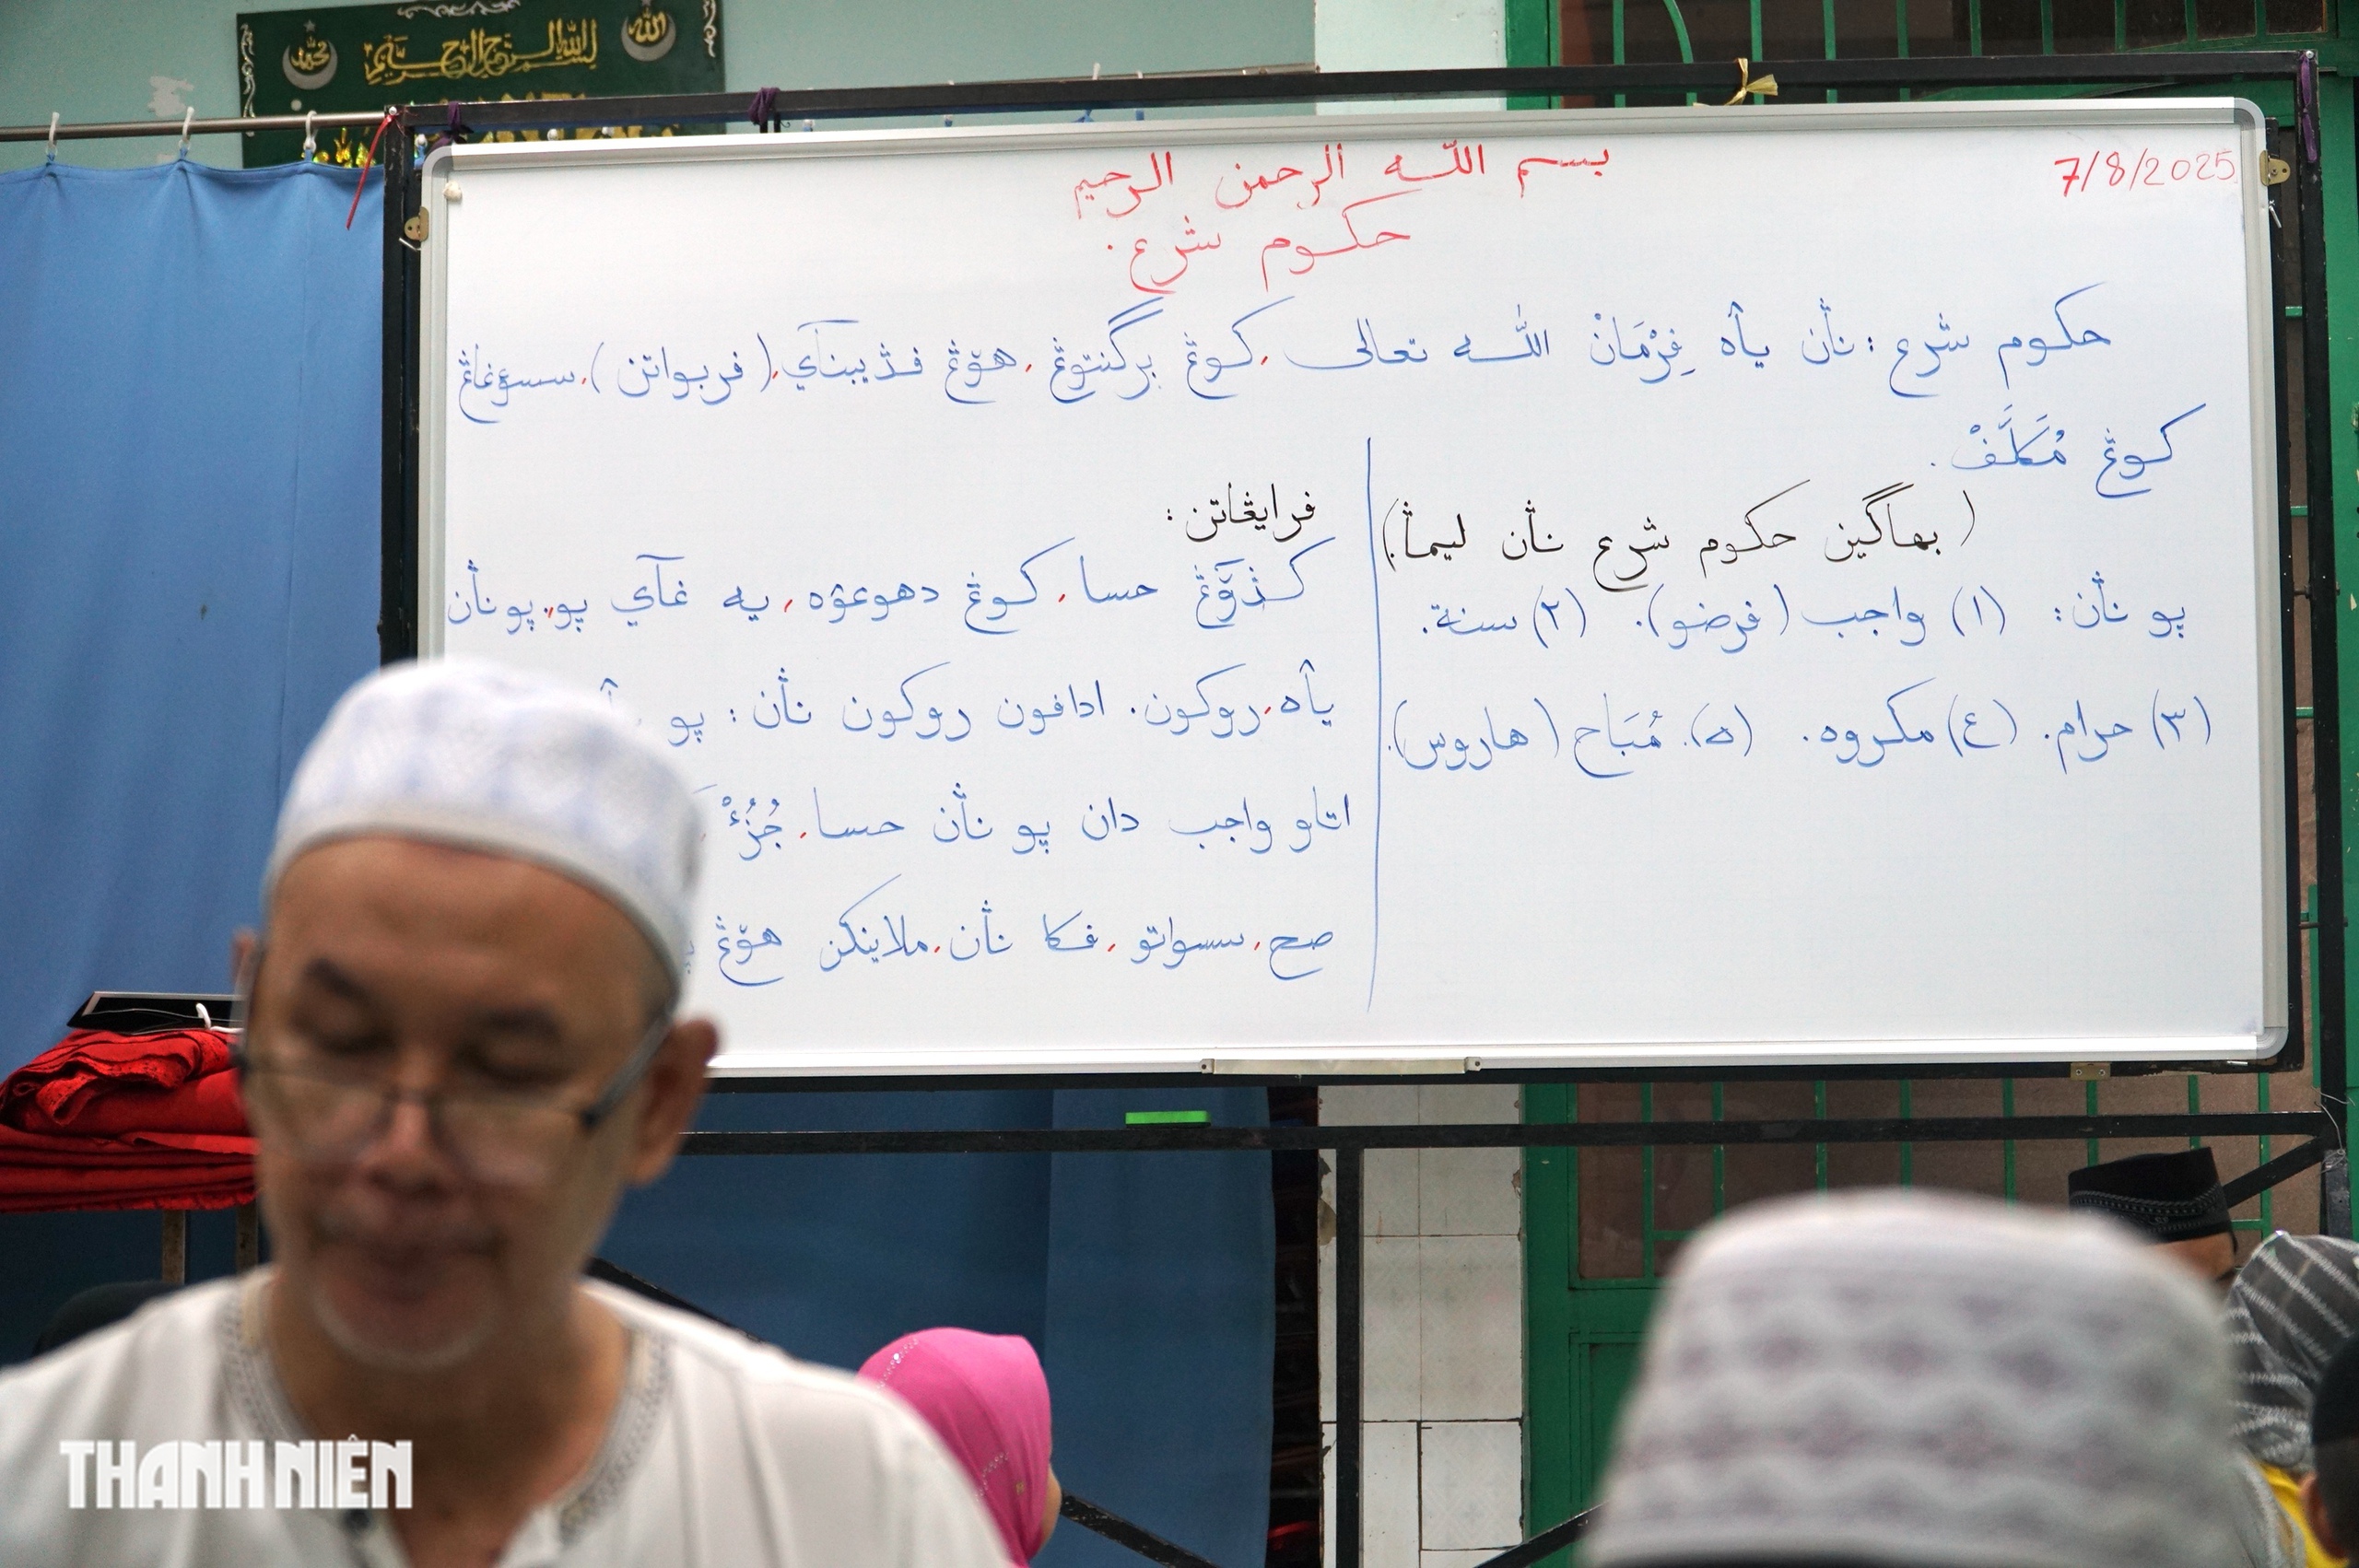 محمد
بسم الله الرحمن الرحيم
الله
7/8/2025
بسم اللّه الرحمن الرحيم
حكوم شرع.
حكوم شرع : نأن يأه فِرْمَانْ اللّه تعالى، كوڠ برݢنتوڠ، هوڠ فڎيبنآي، (فربواتن)، سسوغاڠ
كوڠ مُكَلَّفْ.
(بهاݢين حكوم شرع نأن ليما)
يو نأن: (١) واجب (فرضو). (٢) سنة.
(٣) حرام. (٤) مكروه. (٥). مُبَاح (هاروس).
فرايڠاتن :
كڎوڠ حسا، كوڠ دهوعوه، يه غآي يو، يو نأن
يأه، روكون. ادافون روكون نأن : يو
اتاو واجب دان يو نأن حسا، جُزُءْ
صح، سسواتو، فكا نأن، ملاينكن هوڠ
THANH NIÊN